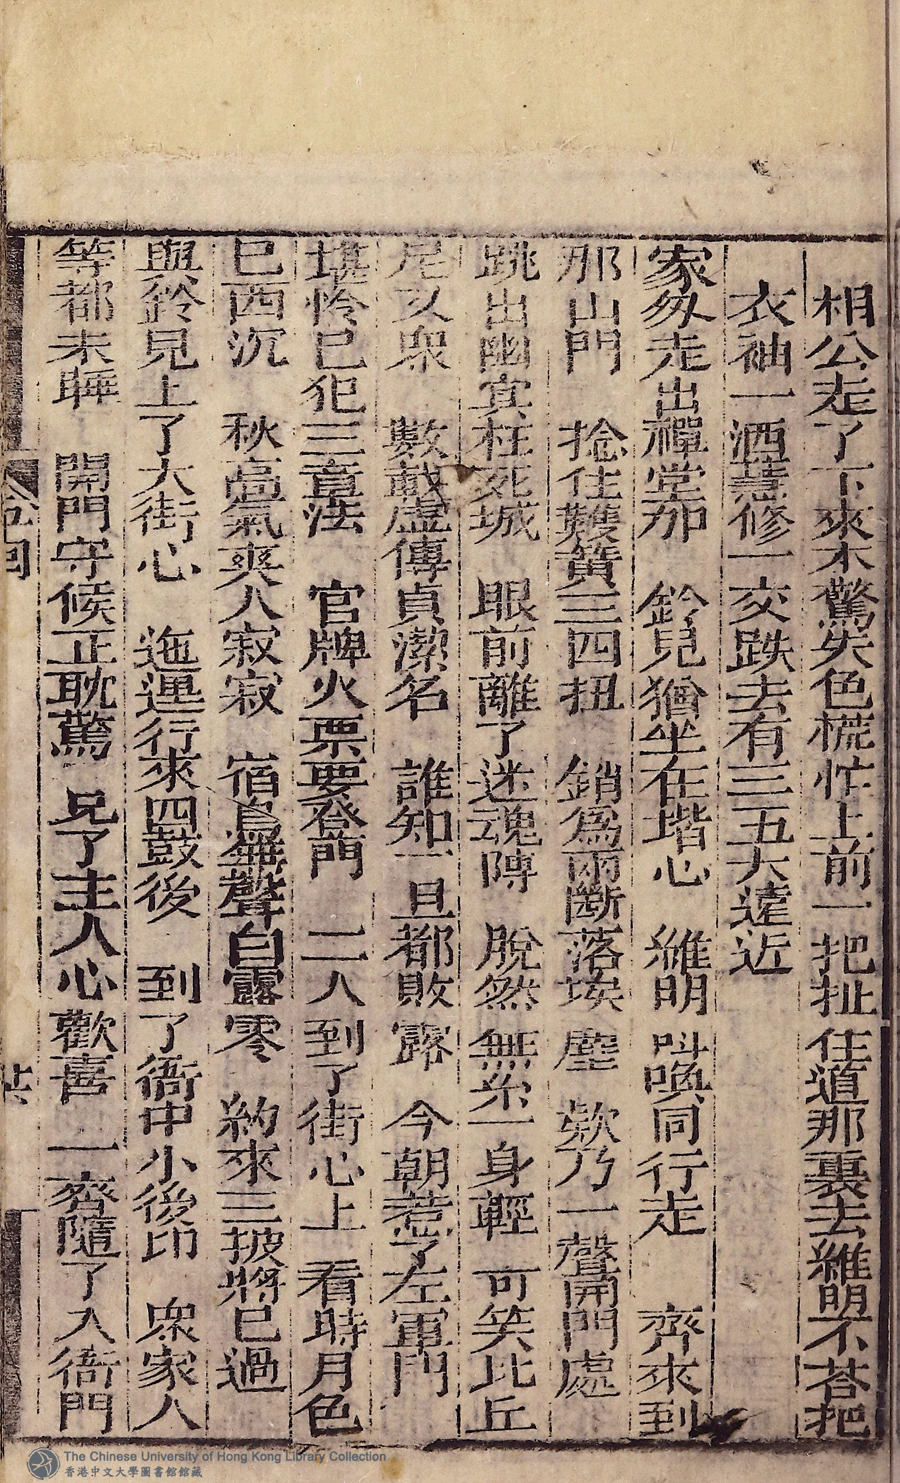 相公走了下來不驚失色慌忙上前一把扯住道那裏去維明不荅把
衣袖一洒慧修一交跌去有三五大遠近
家匆走出禪堂加 鈴兒猶坐在堦心 維明呌喚同行走 齊來到
那山門 捻住𨿽簧三四扭 銷爲兩斷落埃塵 欸乃一聲開門處
跳出幽冥枉死城 眼前離了迷魂陣 脫然無系一身輕 可笑比丘
尼又衆 數載虛傳貞潔名 誰知一旦都敗露 今朝惹了左軍門
堪怜已犯三章法 官牌火票要登門 二人到了街心上 看時月色
已西沉 秋高氣爽人寂寂 宿鳥無聲白露零 約來三披將已過
與鈴兒上了大街心 迤𨓦行來四鼓後 到了衙中小後印 衆家人
等都未睡 開門守候正耽驚 見了主人心歡喜 一齊隨了入衙門
The Chinese University of Hong Kong Library Collection
香港中文大學圖書館館藏